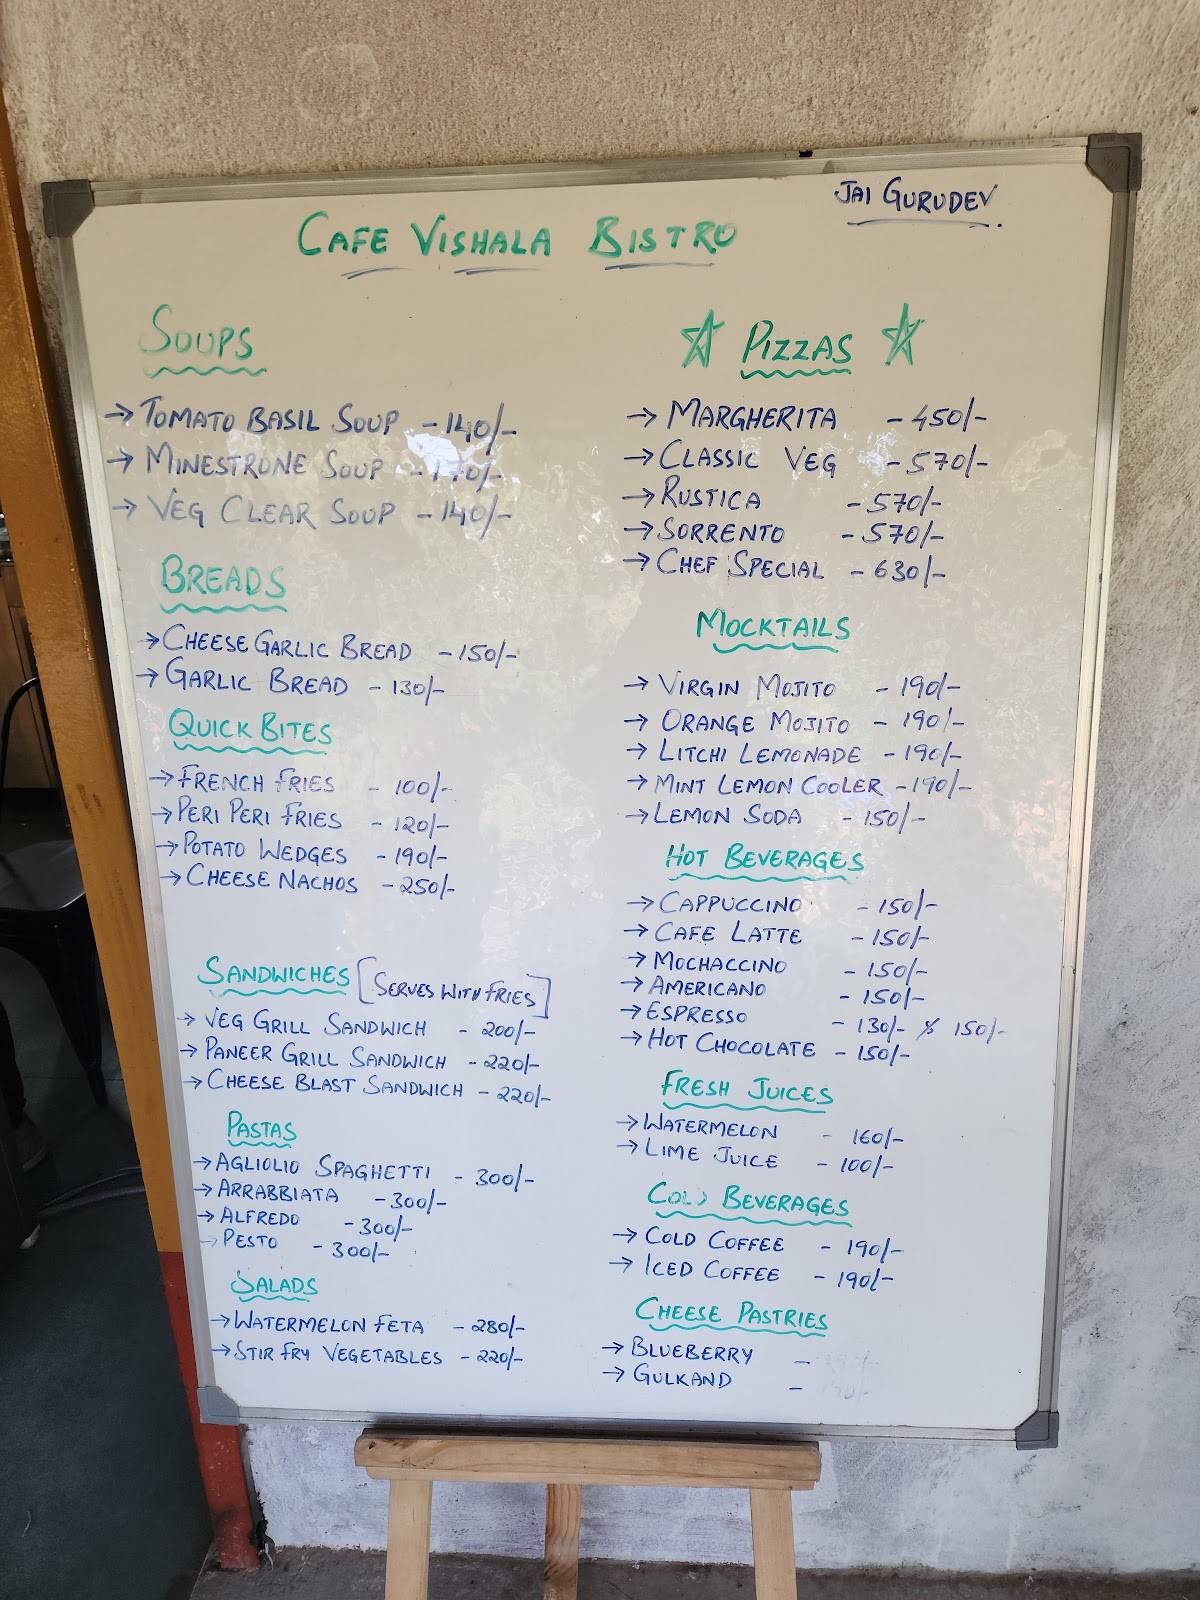 JAI GURUDEV
CAFE VISHALA BISTRO
SOUPS
→ TOMATO BASIL SOUP - 140/-
→ MINESTRONE SOUP - 170/-
→ VEG CLEAR SOUP - 140/-
BREADS
→ CHEESE GARLIC BREAD - 150/-
→ GARLIC BREAD - 130/-
QUICK BITES
→ FRENCH FRIES - 100/-
→ PERI PERI FRIES - 120/-
→ POTATO WEDGES - 190/-
→ CHEESE NACHOS - 250/-
SANDWICHES [SERVES WITH FRIES]
→ VEG GRILL SANDWICH - 200/-
→ PANEER GRILL SANDWICH - 220/-
→ CHEESE BLAST SANDWICH - 220/-
PASTAS
→ AGLIOLIO SPAGHETTI - 300/-
→ ARRABBIATA - 300/-
→ ALFREDO - 300/-
→ PESTO - 300/-
SALADS
→ WATERMELON FETA - 280/-
→ STIR FRY VEGETABLES - 220/-
☆ PIZZAS ☆
→ MARGHERITA - 450/-
→ CLASSIC VEG - 570/-
→ RUSTICA - 570/-
→ SORRENTO - 570/-
→ CHEF SPECIAL - 630/-
MOCKTAILS
→ VIRGIN MOJITO - 190/-
→ ORANGE MOJITO - 190/-
→ LITCHI LEMONADE - 190/-
→ MINT LEMON COOLER - 190/-
→ LEMON SODA - 150/-
HOT BEVERAGES
→ CAPPUCCINO - 150/-
→ CAFE LATTE - 150/-
→ MOCHACCINO - 150/-
→ AMERICANO - 150/-
→ ESPRESSO - 130/- & 150/-
→ HOT CHOCOLATE - 150/-
FRESH JUICES
→ WATERMELON - 160/-
→ LIME JUICE - 100/-
COLD BEVERAGES
→ COLD COFFEE - 190/-
→ ICED COFFEE - 190/-
CHEESE PASTRIES
→ BLUEBERRY -
→ GULKAND -